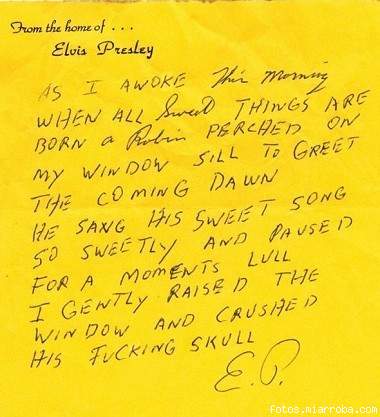 From the home of . . .
Elvis Presley
AS I AWOKE This Morning
WHEN ALL Sweet THINGS ARE
BORN a Robin PERCHED ON
MY WINDOW SILL TO GREET
THE COMING DAWN
HE SANG HIS SWEET SONG
SO SWEETLY AND PAUSED
FOR A MOMENTS LULL
I GENTLY RAISED THE
WINDOW AND CRUSHED
HIS FUCKING SKULL
E.P.
fotos.miarroba.com